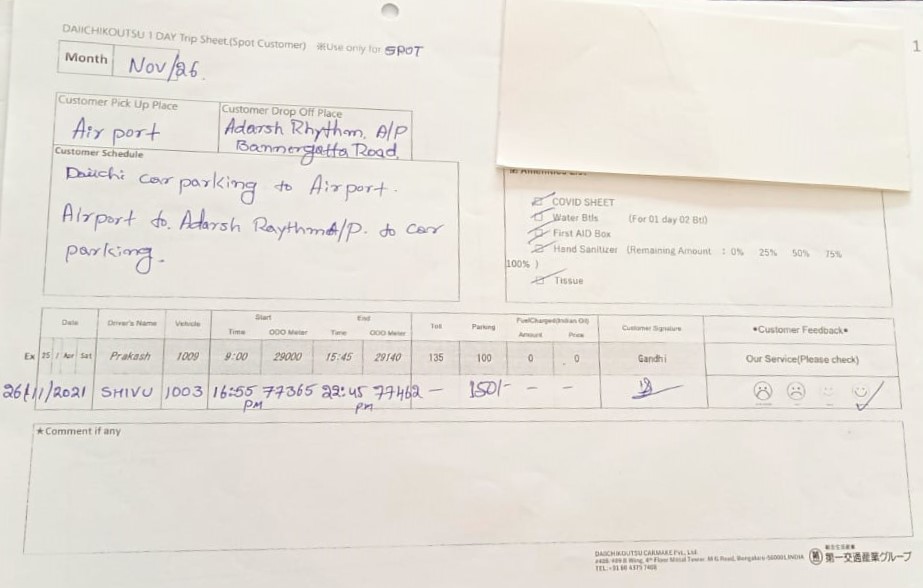 DAIICHIKOUTSU 1 DAY Trip Sheet.(Spot Customer) ※Use only for SPOT
1
Month Nov/26.
Customer Pick Up Place Customer Drop Off Place
Airport Adarsh Rhythm. A/P
Bannergatta Road.
Customer Schedule
Daiichi car parking to Airport.
Airport to. Adarsh Raythm A/P. to car
parking.
COVID SHEET
Water Btls (For 01 day 02 Btl)
First AID Box
Hand Sanitizer (Remaining Amount : 0% 25% 50% 75%
100% )
Tissue
Date Driver's Name Vehicle Start End Toll Parking FuelCharged(Indian Oil) Customer Signature •Customer Feedback•
Time ODO Meter Time ODO Meter Amount Price
Ex 25 / Apr Sat Prakash 1009 9:00 29000 15:45 29140 135 100 0 0 Gandhi Our Service(Please check)
26/11/2021 SHIVU 1003 16:55 PM 77365 22:45 pm 77462 — 150/- — —
★Comment if any
DAIICHIKOUTSU CARMAKE Pvt, Ltd.
TEL:+91 80 4375 7408
第一交通産業グループ